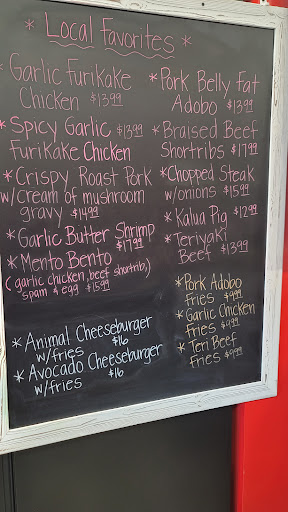 * Local Favorites *
* Garlic Furikake
Chicken $13.99
* Spicy Garlic $13.99
Furikake Chicken
* Crispy Roast Pork
w/Cream of mushroom
gravy $14.99
* Garlic Butter Shrimp
$17.99
* Mento Bento
(garlic chicken, beef shortrib,
spam & egg $15.99)
* Animal Cheeseburger
w/fries $16
* Avocado Cheeseburger
w/fries $16
* Pork Belly Fat
Adobo $13.99
* Braised Beef
Shortribs $17.99
* Chopped Steak
w/onions $15.99
* Kalua Pig $12.99
* Teriyaki
Beef $13.99
* Pork Adobo
Fries $9.99
* Garlic Chicken
Fries $9.99
* Teri Beef
Fries $9.99